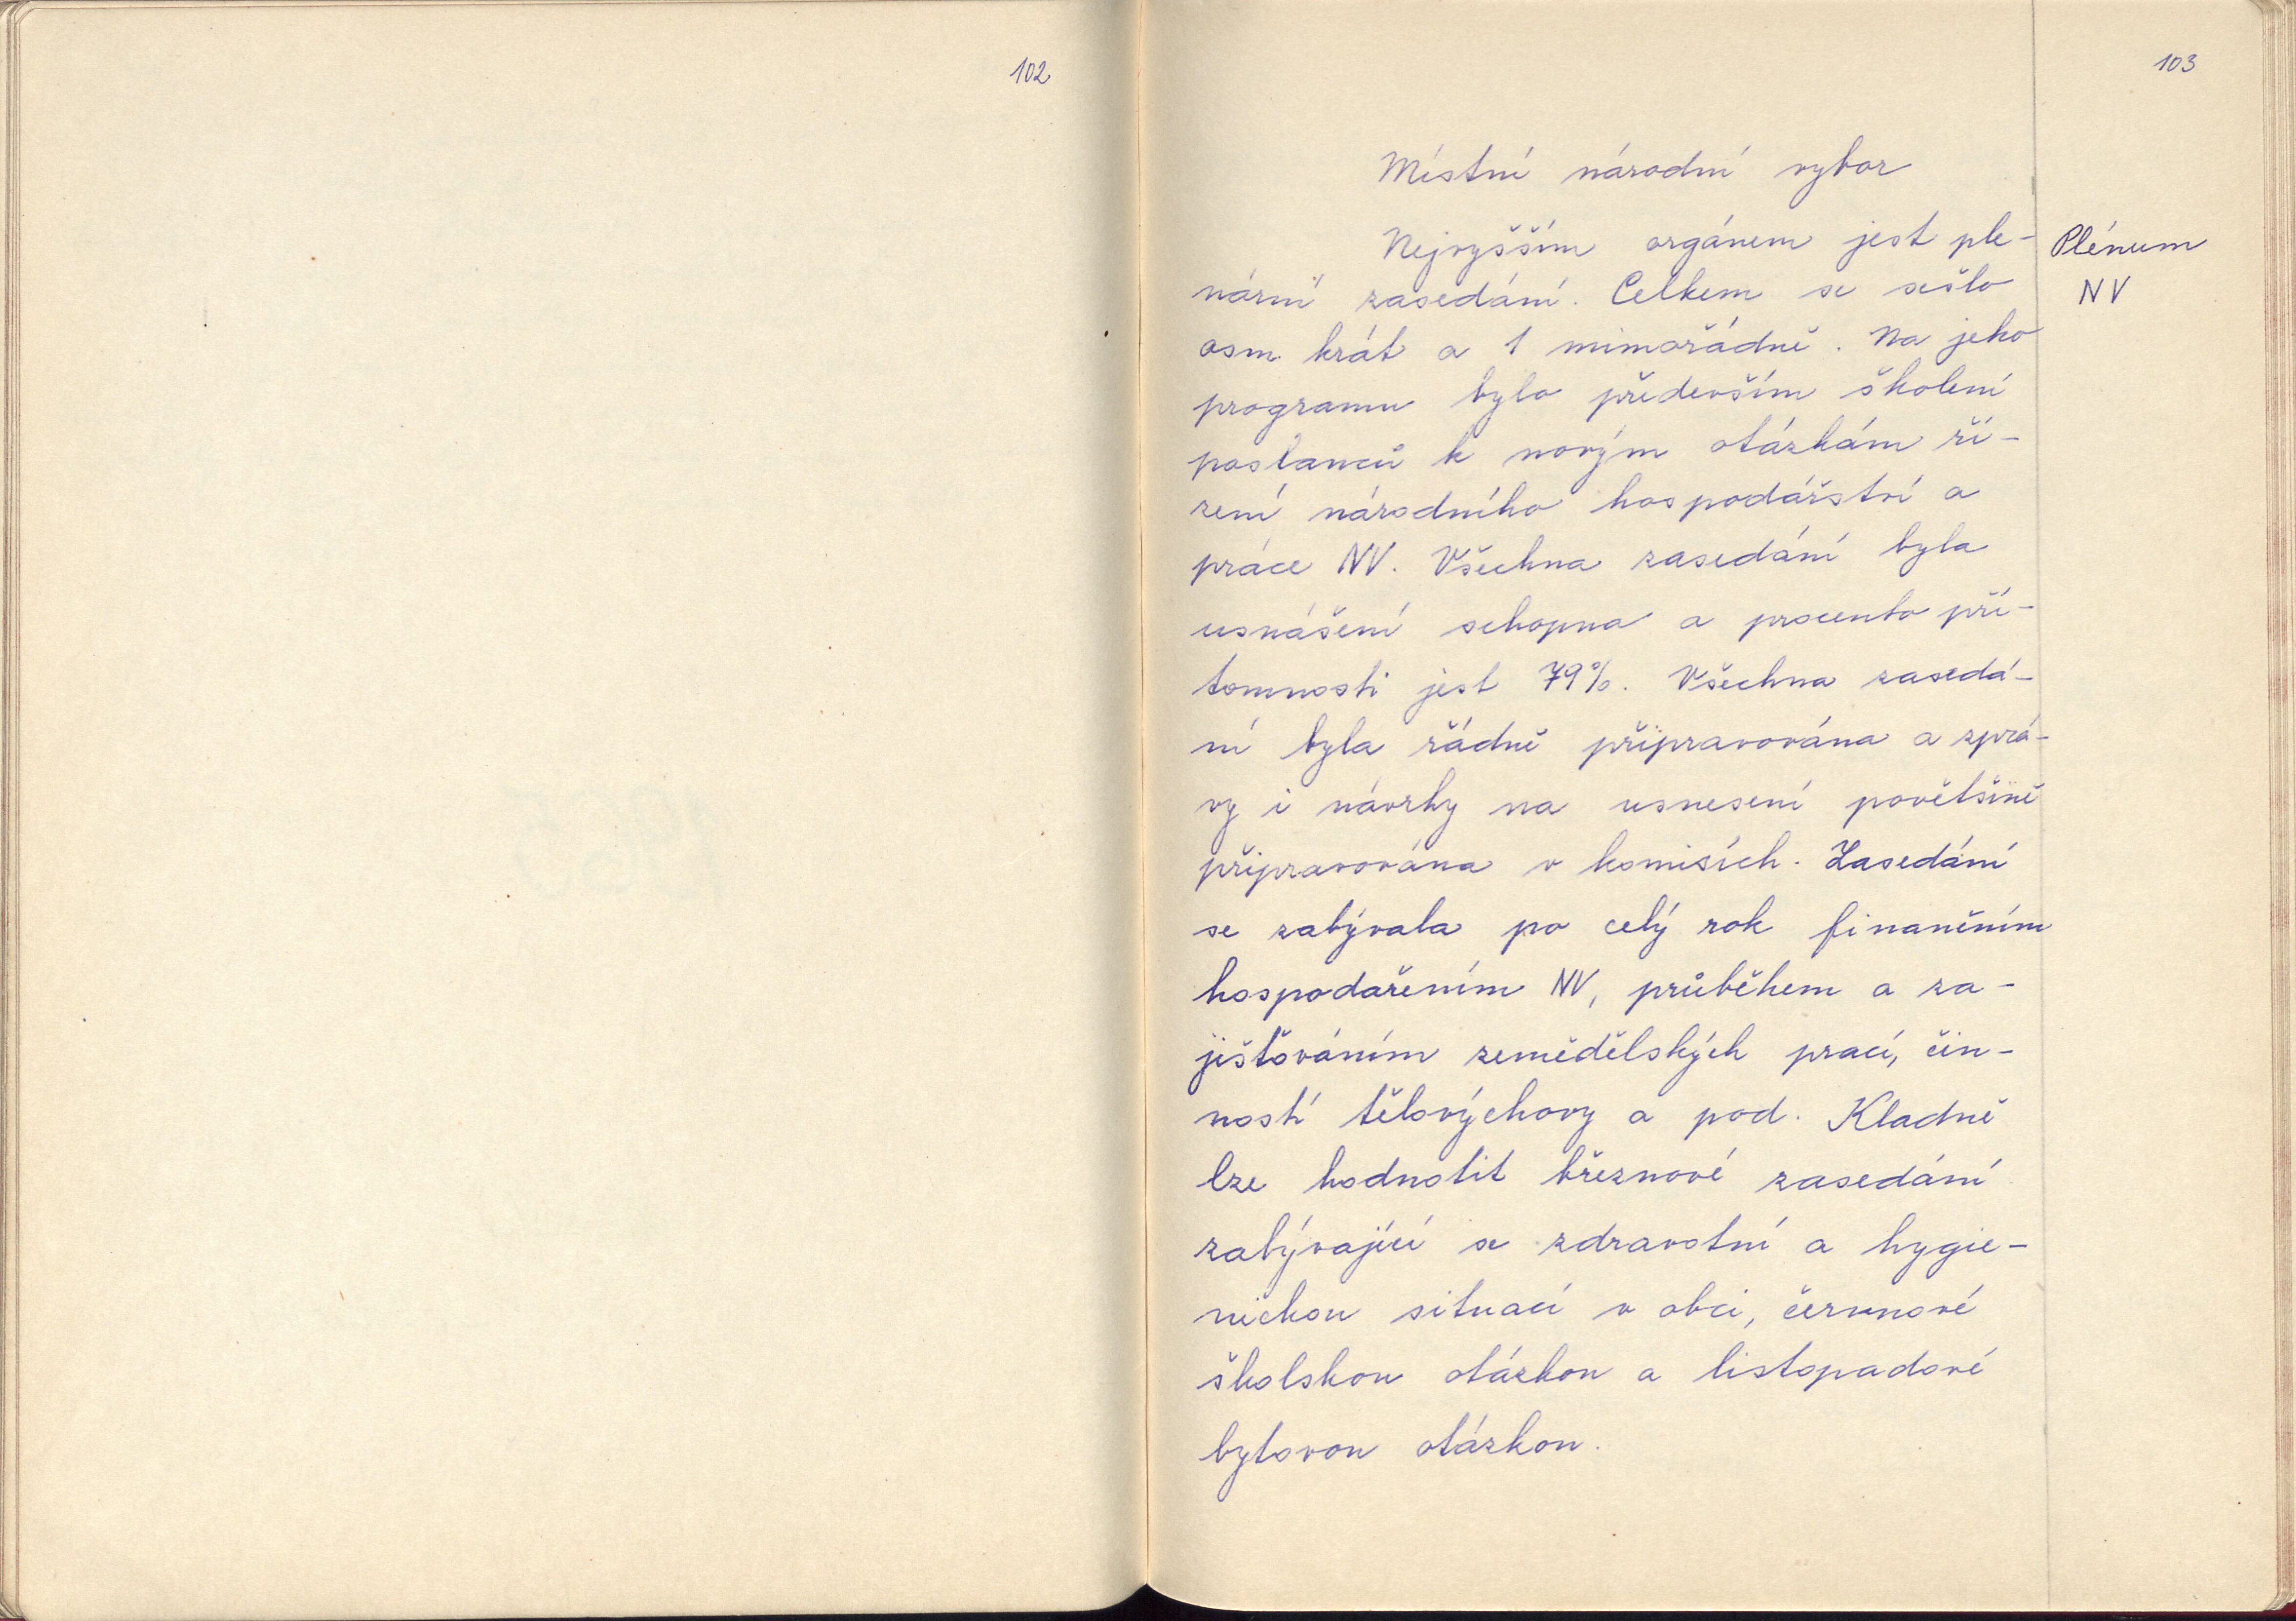 102
103
Místní národní vybor
Nejvyšším orgánem jest ple-
Plénum
nární zasedání. Celkem se sešlo
NV
osm krát a 1 mimořádně. Na jeho
programu bylo především školení
poslanců k novým otázkám ří-
zení národního hospodářství a
práce NV. Všechna zasedání byla
usnášení schopna a procento pří-
tomnosti jest 79%. Všechna zasedá-
ní byla řádně připravována a zprá-
vy i návrhy na usnesení povětšině
připravována v komisích. Zasedání
se zabývala po celý rok finančním
hospodařením NV, průběhem a za-
jišťováním zemědělských prací, čin-
ností tělovýchovy a pod. Kladně
lze hodnotit březnové zasedání
zabývající se zdravotní a hygie-
nickou situací v obci, červnové
školskou otázkou a listopadové
bytovou otázkou.